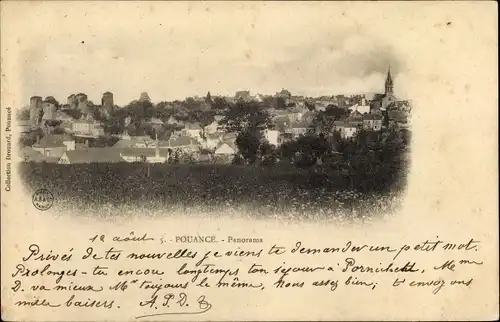 Collection Drouard, Pouancé
12 août 5. - POUANCÉ. - Panorama
Privé de tes nouvelles je viens te demander un petit mot.
Prolonges-tu encou longtemps ton séjour à Pornichet, Mme
D. va mieux Mr toujours le même, Nous assez bien, t'envoyons
mille baisers. A P D